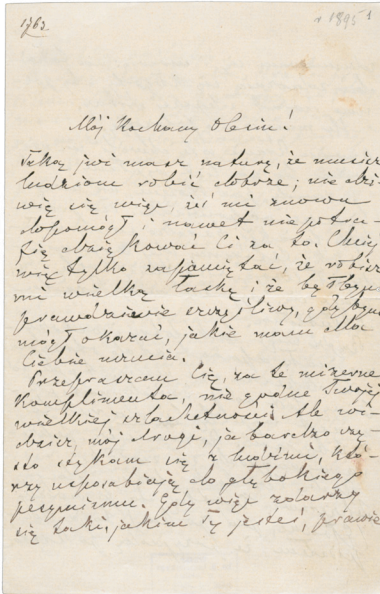 1763.
1895 1
Mój Kochany Olesiu!
Taką już masz naturę, że musisz
ludziom robić dobrze; nie dzi-
wię się więc, żeś mi znowu
dopomógł i nawet nie potra-
fię dziękować Ci za to. Chciej
więc tylko zapamiętać, że robisz
mi wielką łaskę i że byłbym
prawdziwie szczęśliwy, gdybym
mógł okazać, jakie mam dla
Ciebie uczucia.
Przepraszam Cię, za te mizerne
komplimenta, nie godne Twojej
wielkiej szlachetności. Ale wi-
dzisz, mój drogi, ja bardzo czę-
sto stykam się z ludźmi, któ-
rzy usposabiają do głębokiego
pesymizmu. Gdy więc zdarzy
się taki, jakim Ty jesteś, prawie